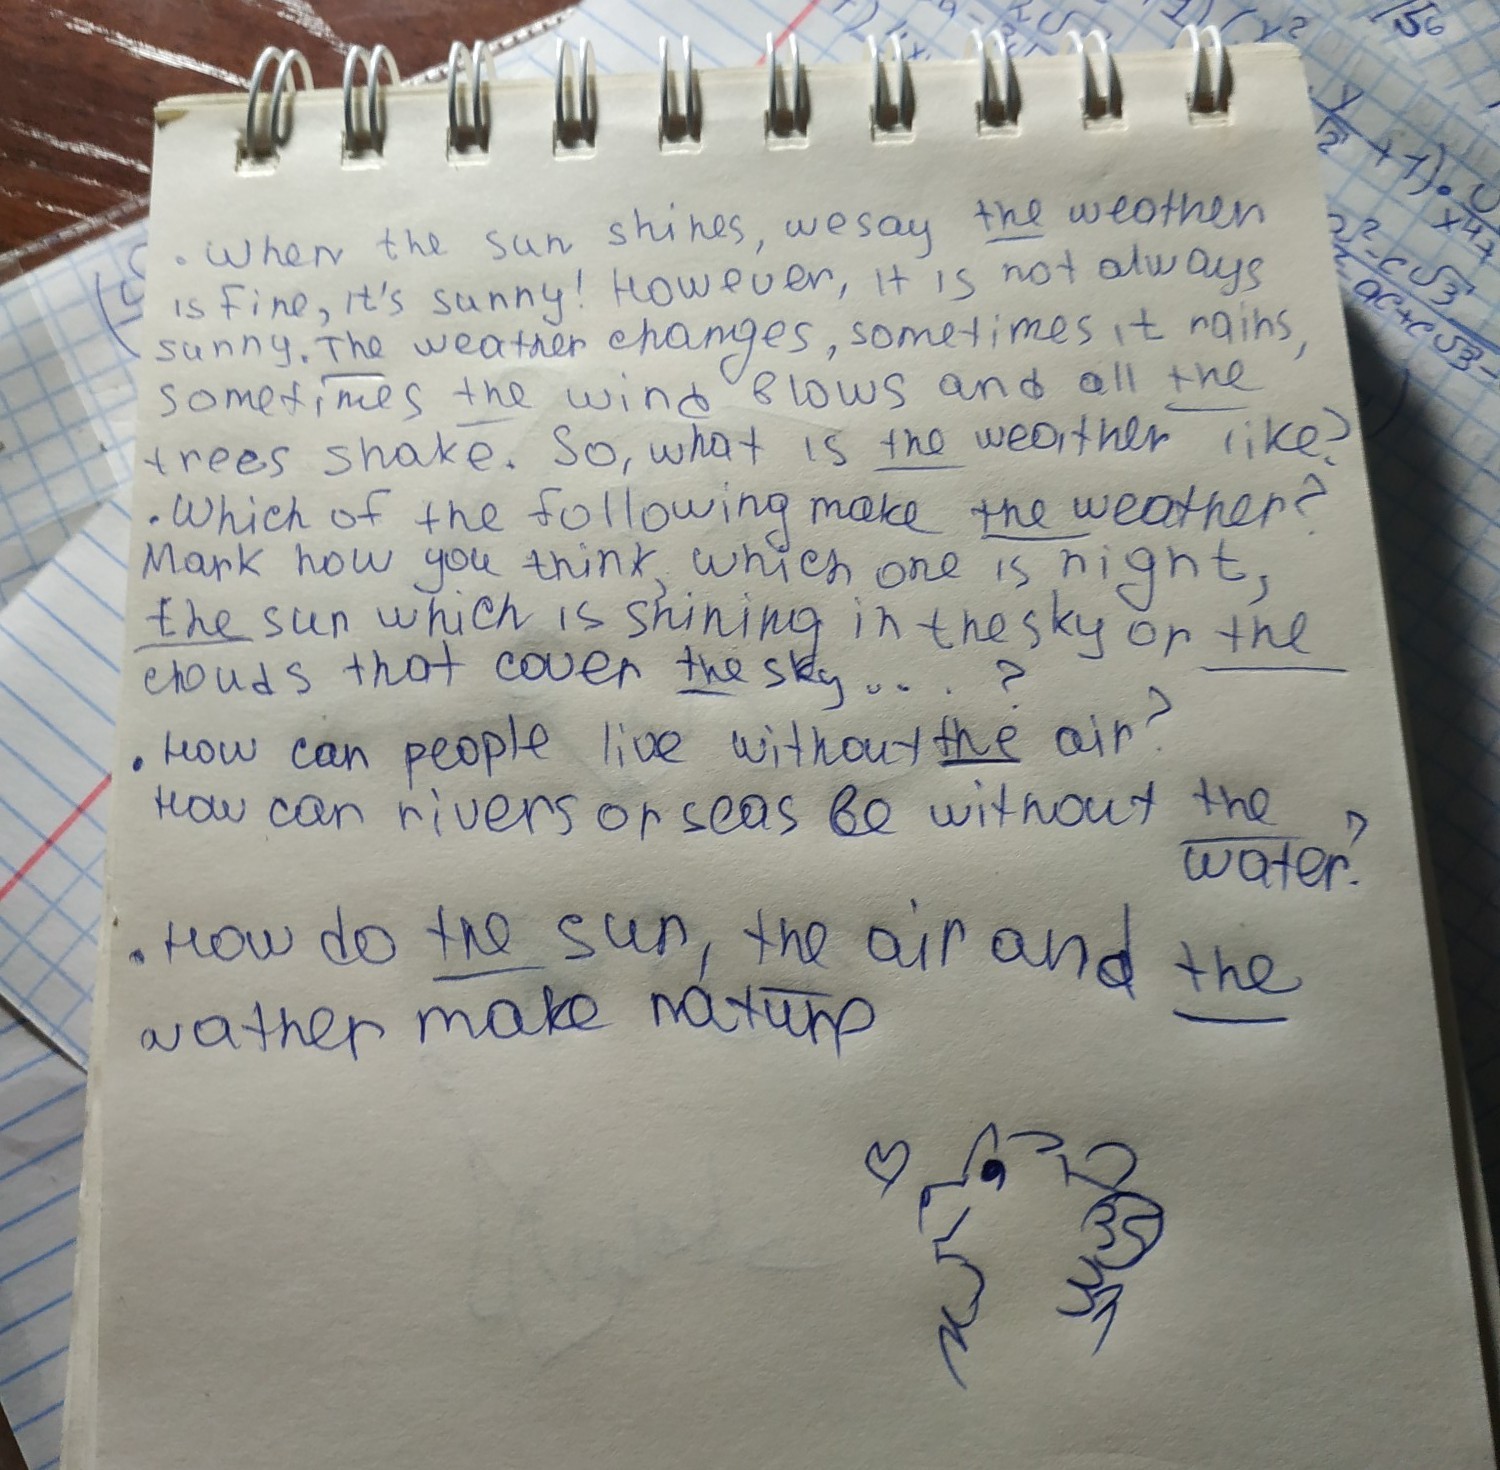 . When the sun shines, we say the weather
is fine, it's sunny! However, it is not always
sunny. The weather changes, sometimes it rains,
sometimes the wind blows and all the
trees shake. So, what is the weather like?
. Which of the following make the weather?
Mark how you think, which one is right,
the sun which is shining in the sky or the
clouds that cover the sky....?
. How can people live without the air?
How can rivers or seas be without the
water?
. How do the sun, the air and the
wather make nature